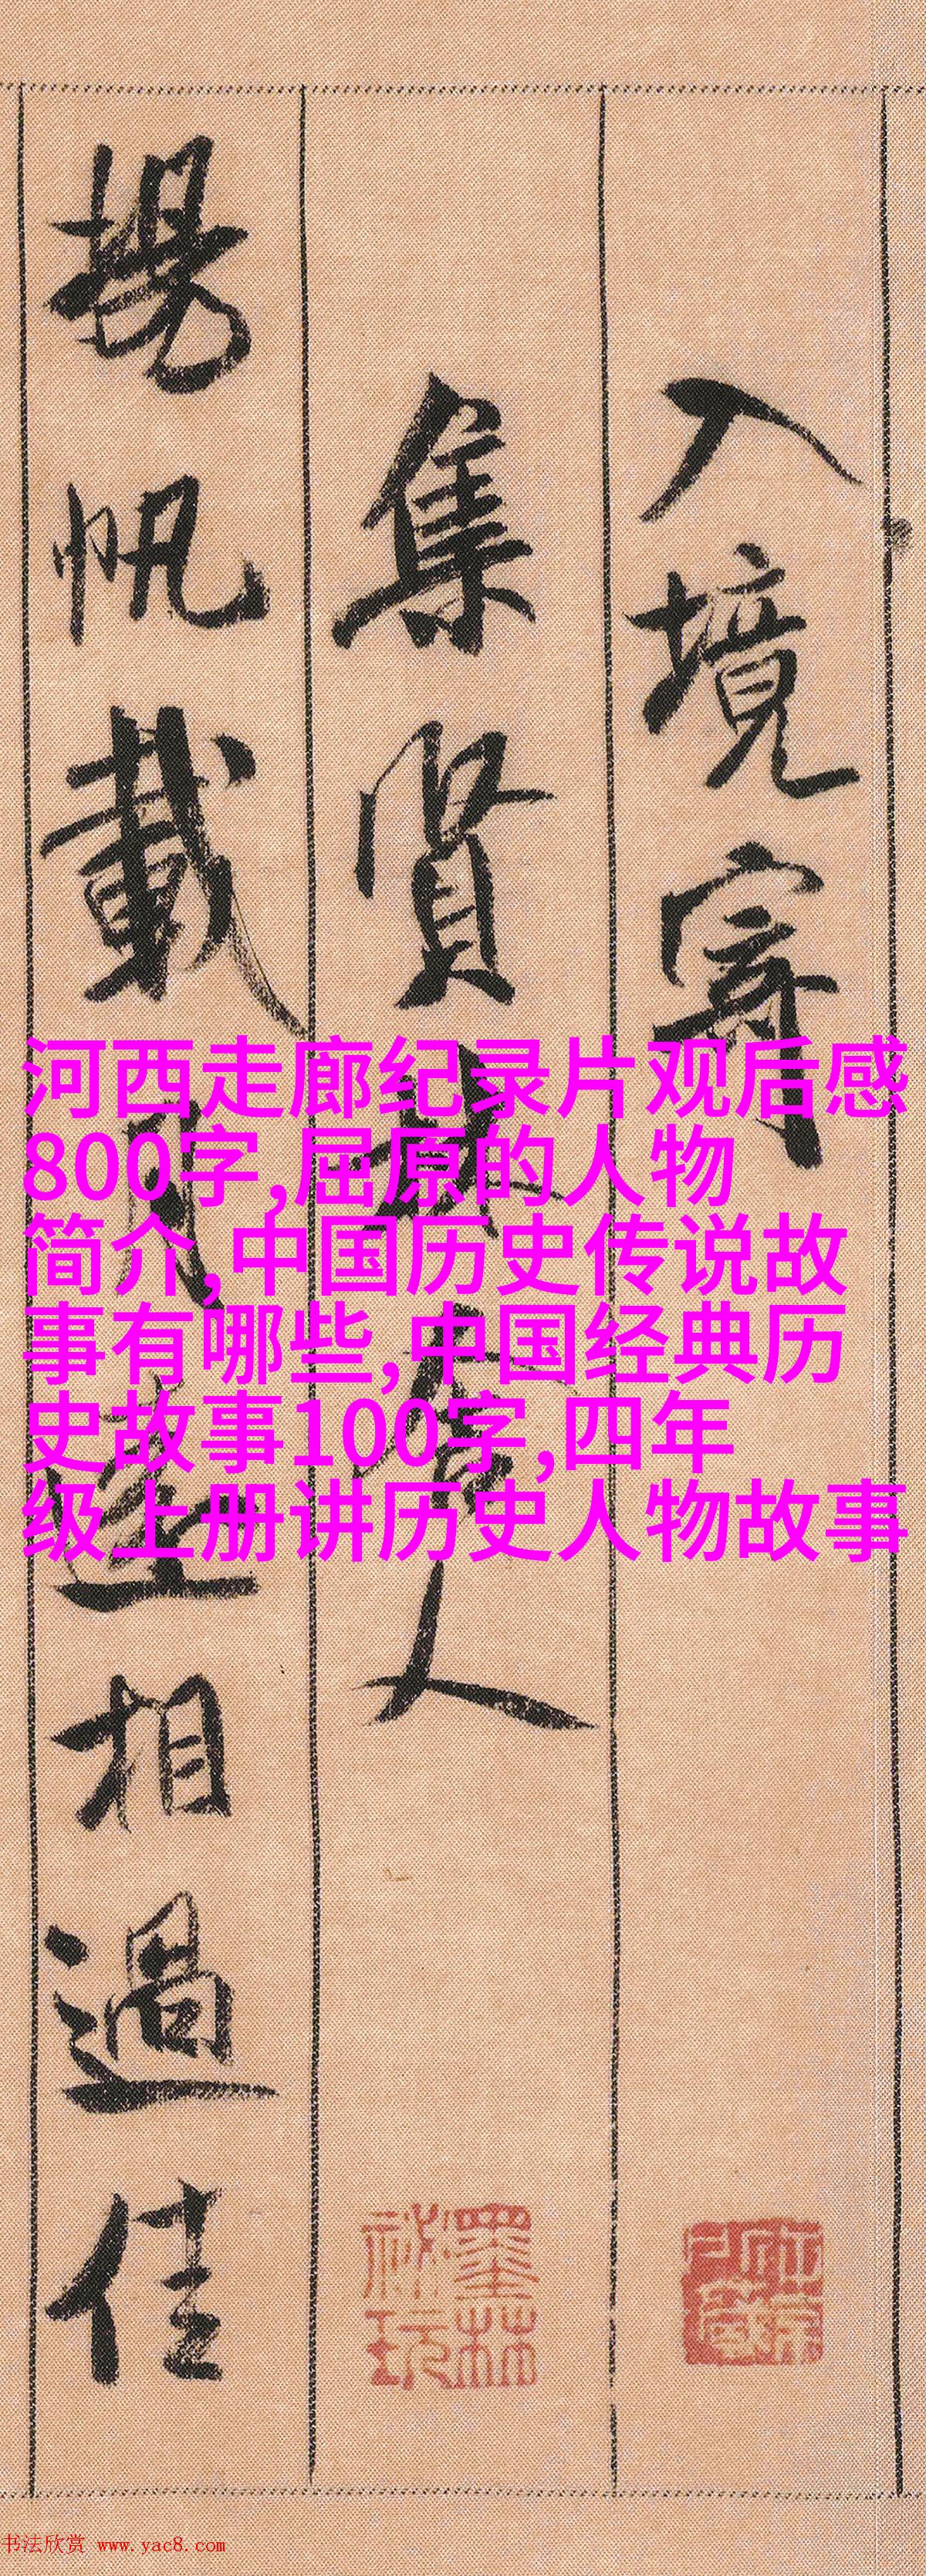 入境寄
集賢林舍人
揚帆載月遠相過佳
墨林
祕玩
河西走廊纪录片观后感
800字,屈原的人物
简介,中国历史传说故
事有哪些,中国经典历
史故事100字,四年
级上册讲历史人物故事
书法欣赏 www.yac8.com